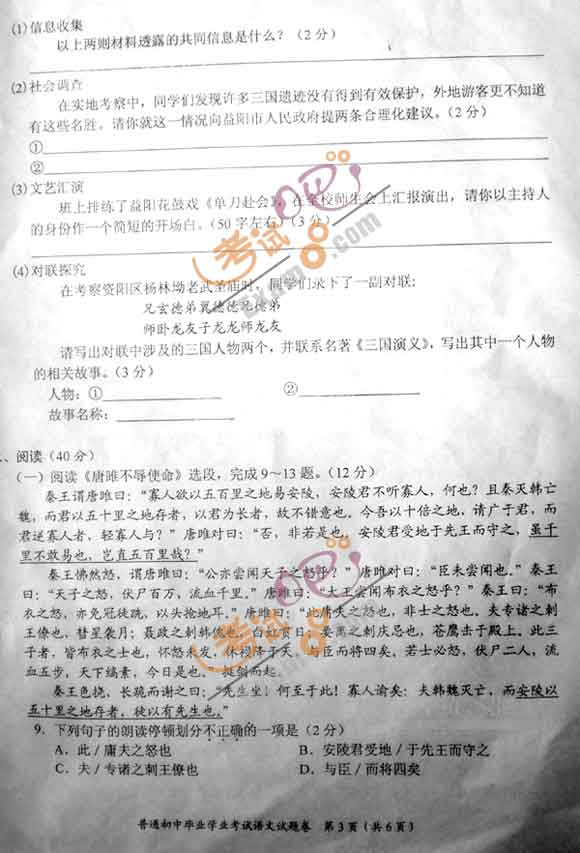 (1)信息收集
以上两则材料透露的共同信息是什么？(2分)
(2)社会调查
在实地考察中，同学们发现许多三国遗迹没有得到有效保护，外地游客更不知道
有这些名胜。请你就这一情况向益阳市人民政府提两条合理化建议。(2分)
①
②
(3)文艺汇演
班上排练了益阳花鼓戏《单刀赴会》，在全校师生会上汇报演出，请你以主持人
的身份作一个简短的开场白。(50字左右)(3分)
(4)对联探究
在考察资阳区杨林坳老武圣庙时，同学们录下了一副对联：
兄玄德弟翼德德兄德弟
师卧龙友子龙龙师龙友
请写出对联中涉及的三国人物两个，并联系名著《三国演义》，写出其中一个人物
的相关故事。(3分)
人物：① ②
故事名称：
、阅读(40分)
(一)阅读《唐雎不辱使命》选段，完成9～13题。(12分)
秦王谓唐雎曰：“寡人欲以五百里之地易安陵，安陵君不听寡人，何也？且秦灭韩亡
魏，而君以五十里之地存者，以君为长者，故不错意也。今吾以十倍之地，请广于君，而
君逆寡人者，轻寡人与？”唐雎对曰：“否，非若是也。安陵君受地于先王而守之，虽千
里不敢易也，岂直五百里哉？”
秦王怫然怒，谓唐雎曰：“公亦尝闻天子之怒乎？”唐雎对曰：“臣未尝闻也。”秦王
曰：“天子之怒，伏尸百万，流血千里。”唐雎曰：“大王尝闻布衣之怒乎？”秦王曰：“布
衣之怒，亦免冠徒跣，以头抢地耳。”唐雎曰：“此庸夫之怒也，非士之怒也。夫专诸之刺
王僚也，彗星袭月；聂政之刺韩傀也，白虹贯日；要离之刺庆忌也，苍鹰击于殿上。此三
子者，皆布衣之士也，怀怒未发，休祲降于天，与臣而将四矣。若士必怒，伏尸二人，流
血五步，天下缟素，今日是也。”挺剑而起。
秦王色挠，长跪而谢之曰：“先生坐！何至于此！寡人谕矣：夫韩魏灭亡，而安陵以
五十里之地存者，徒以有先生也。”
9．下列句子的朗读停顿划分不正确的一项是(2分)
A．此/庸夫之怒也 B．安陵君受地/于先王而守之
C．夫/专诸之刺王僚也 D．与臣/而将四矣
普通初中毕业学业考试语文试题卷 第3页(共6页)
考试吧
Exam8.com
考试吧
Exam8.com